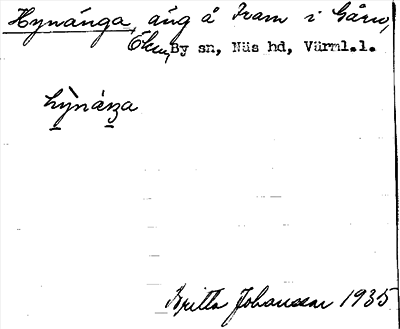 Hynänga, äng å Fram i Gårn,
Öken, By sn, Näs hd, Värml.l.
hy̠̌nánga
Britta Johansson 1935